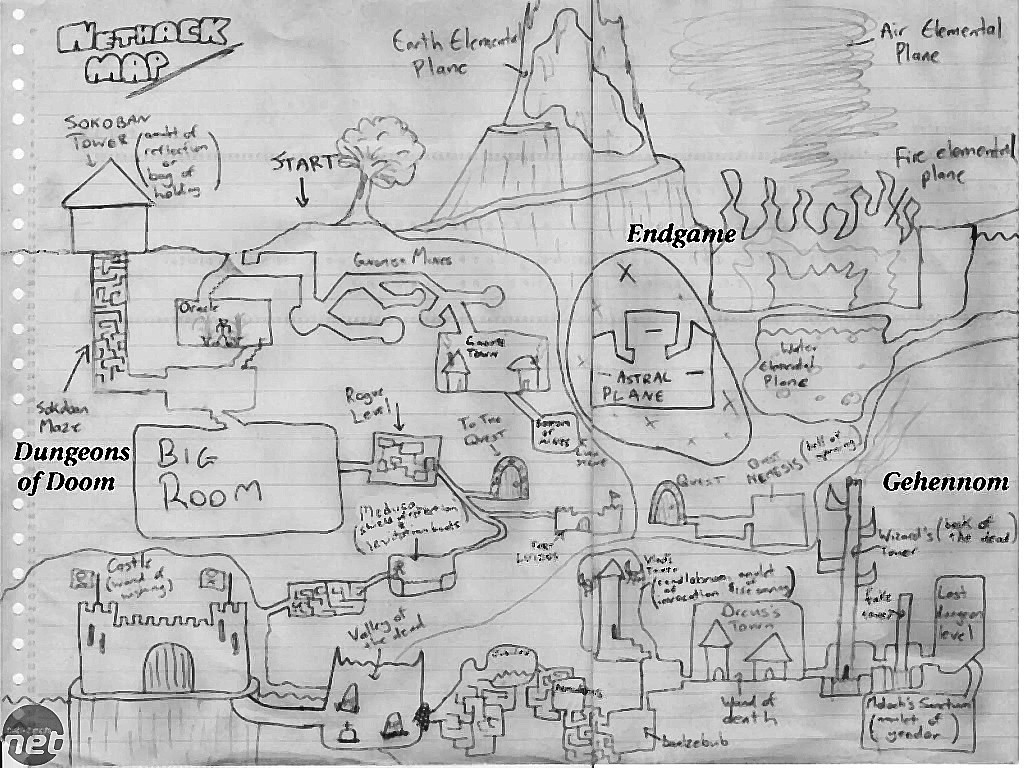 NETHACK
MAP
Earth Elemental
Plane
Air Elemental
Plane
SOKOBAN
TOWER
(amulet of
reflection
or
bag of
holding)
START
Fire elemental
plane
Endgame
Gnomish Mines
Oracle
Gnome
Town
Water
Elemental
Plane
ASTRAL
PLANE
Sokoban
Maze
Rogue
Level
To The
Quest
Bottom
of
mines
Dungeons
of Doom
BIG
ROOM
QUEST
Quest
Nemesis
(bell of
opening)
Gehennom
Medusa
(shield of reflection
&
levitation boots)
Fort
Ludios
Wizard's
Tower
(book of
the dead)
Castle
(wand of
wishing)
Vlad's
Tower
(candelabrum of
invocation
amulet of
life saving)
fake
tower
Last
dungeon
level
Valley of
the dead
Orcus's
Town
Juiblex
Wand of
death
Moloch's Sanctum
(amulet of
yendor)
baalzebub
net